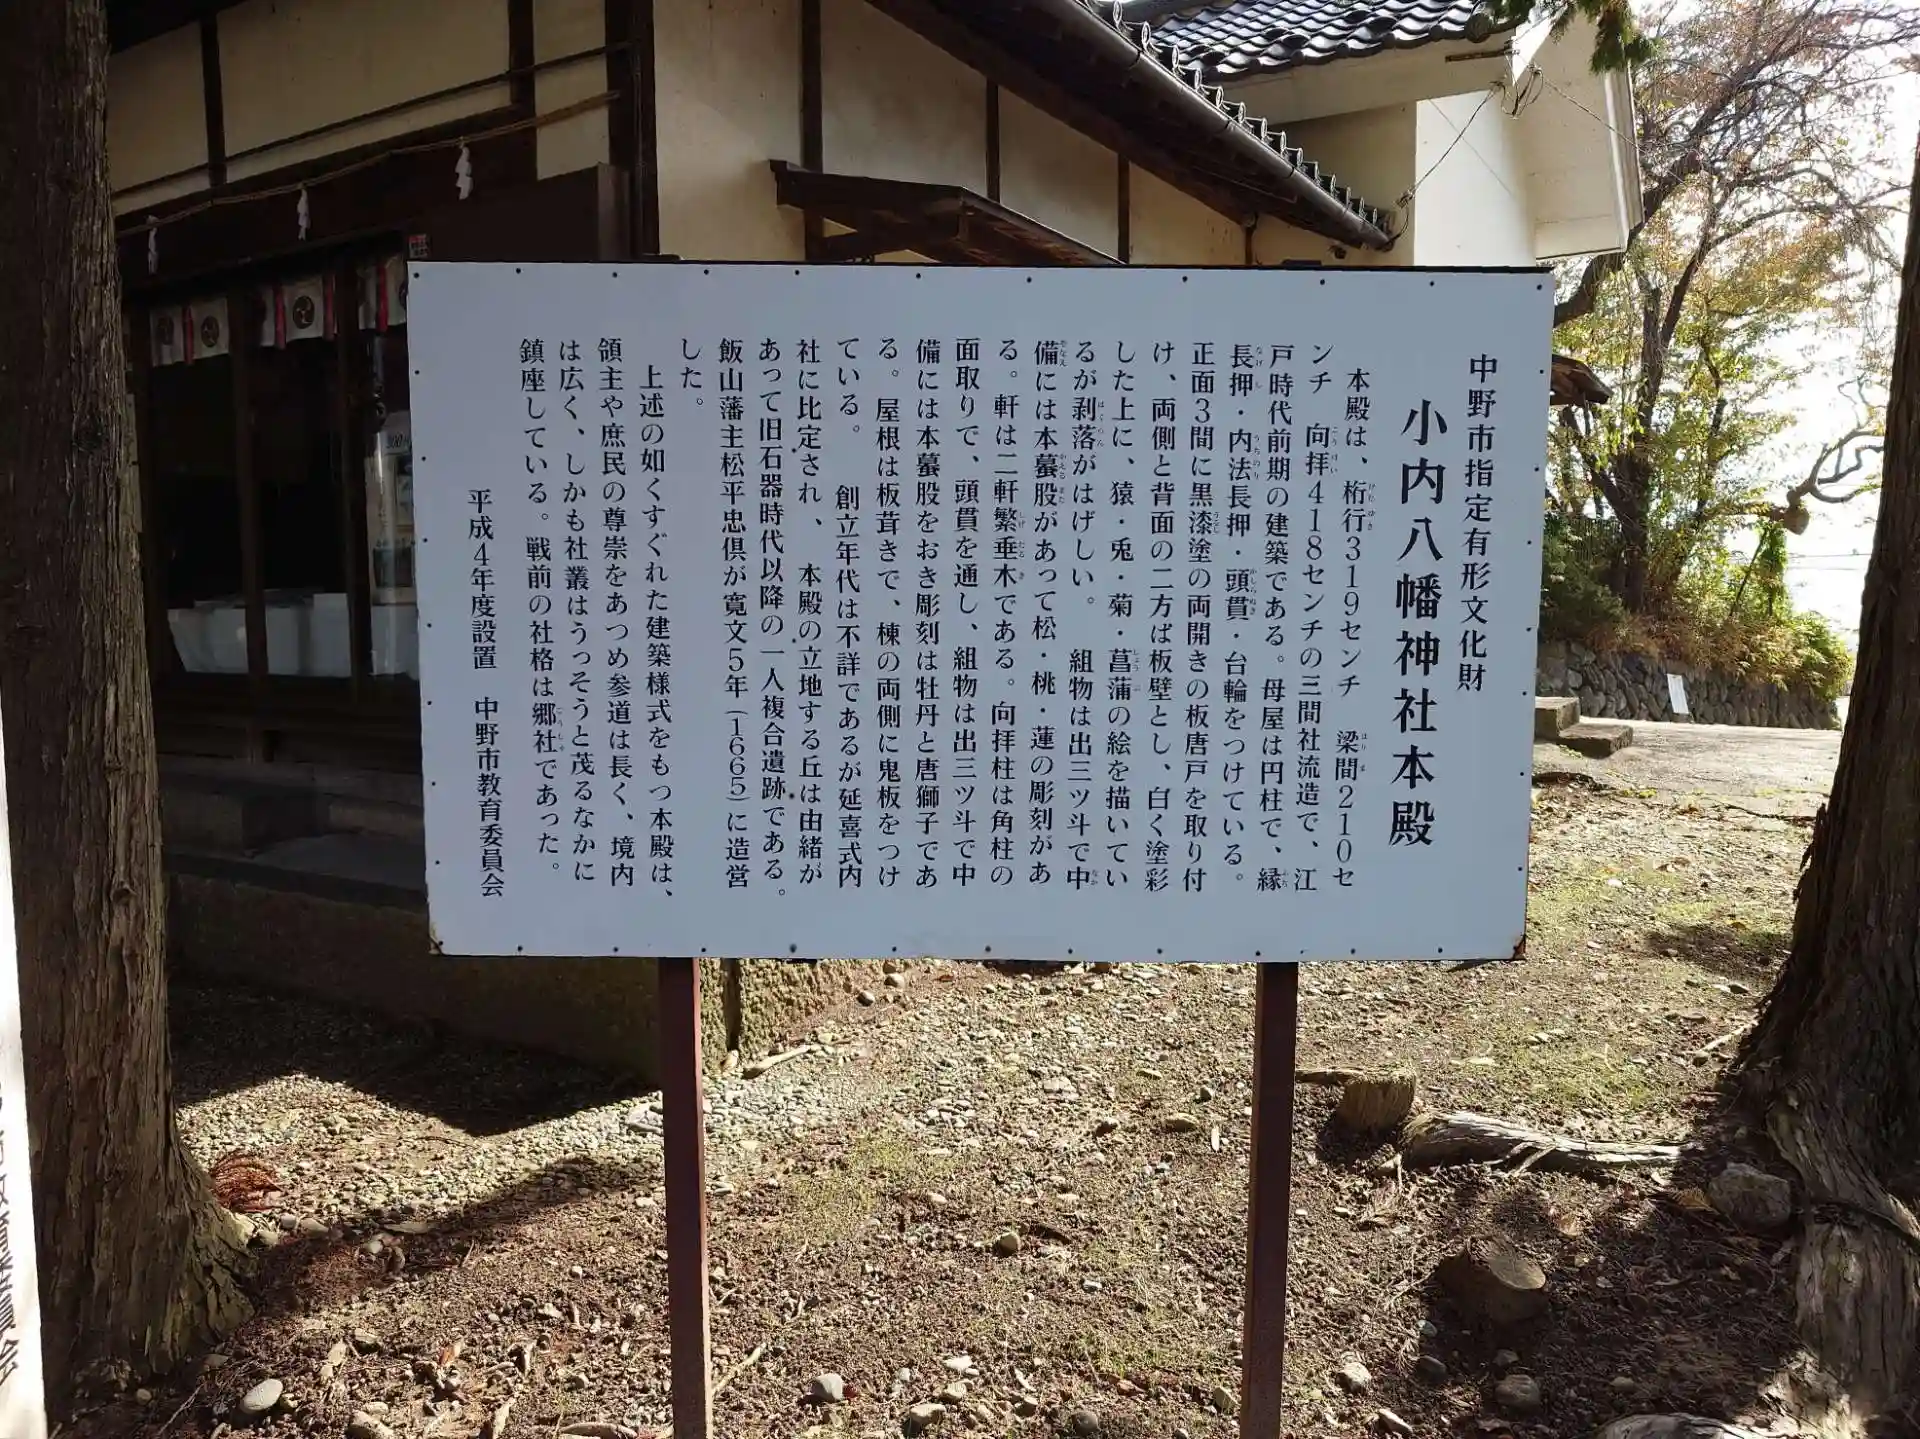 中野市指定有形文化財
小内八幡神社本殿
本殿は、桁行319センチ 梁間210セ
ンチ 向拝418センチの三間社流造で、江
戸時代前期の建築である。母屋は円柱で、縁
長押・内法長押・頭貫・台輪をつけている。
正面3間に黒漆塗の両開きの板唐戸を取り付
け、両側と背面の二方ば板壁とし、白く塗彩
した上に、猿・兎・菊・菖蒲の絵を描いてい
るが剥落がはげしい。 組物は出三ツ斗で中
備には本蟇股があって松・桃・蓮の彫刻があ
る。軒は二軒繁垂木である。向拝柱は角柱の
面取りで、頭貫を通し、組物は出三ツ斗で中
備には本蟇股をおき彫刻は牡丹と唐獅子であ
る。屋根は板葺きで、棟の両側に鬼板をつけ
ている。 創立年代は不詳であるが延喜式内
社に比定され、 本殿の立地する丘は由緒が
あって旧石器時代以降の一人複合遺跡である。
飯山藩主松平忠倶が寛文5年(1665)に造営
した。
上述の如くすぐれた建築様式をもつ本殿は、
領主や庶民の尊崇をあつめ参道は長く、境内
は広く、しかも社叢はうっそうと茂るなかに
鎮座している。戦前の社格は郷社であった。
平成4年度設置 中野市教育委員会